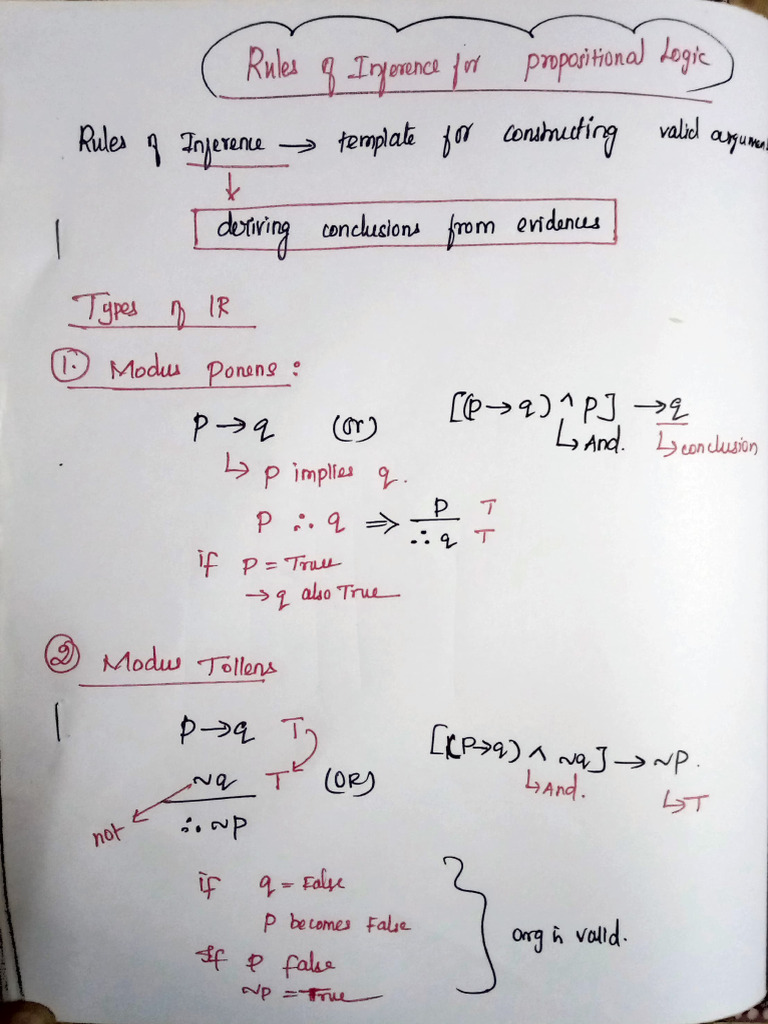 Rules of Inference for propositional Logic
Rules of Inference → template for constructing valid argument
↓
deriving conclusions from evidences
Types of IR
1. Modus Ponens :
P → q (or) [(P → q) ^ P] → q
↳ And. ↳ conclusion
↳ P implies q.
P ∴ q ⇒ P T
∴ q T
if P = True
→ q also True
2 Modus Tollens
P → q T
[(P → q) ^ ~q] → ~P.
~q T (OR)
↳ And. ↳ T
not ∴ ~P
if q = False
P becomes False
arg is valid.
If P false
~P = True